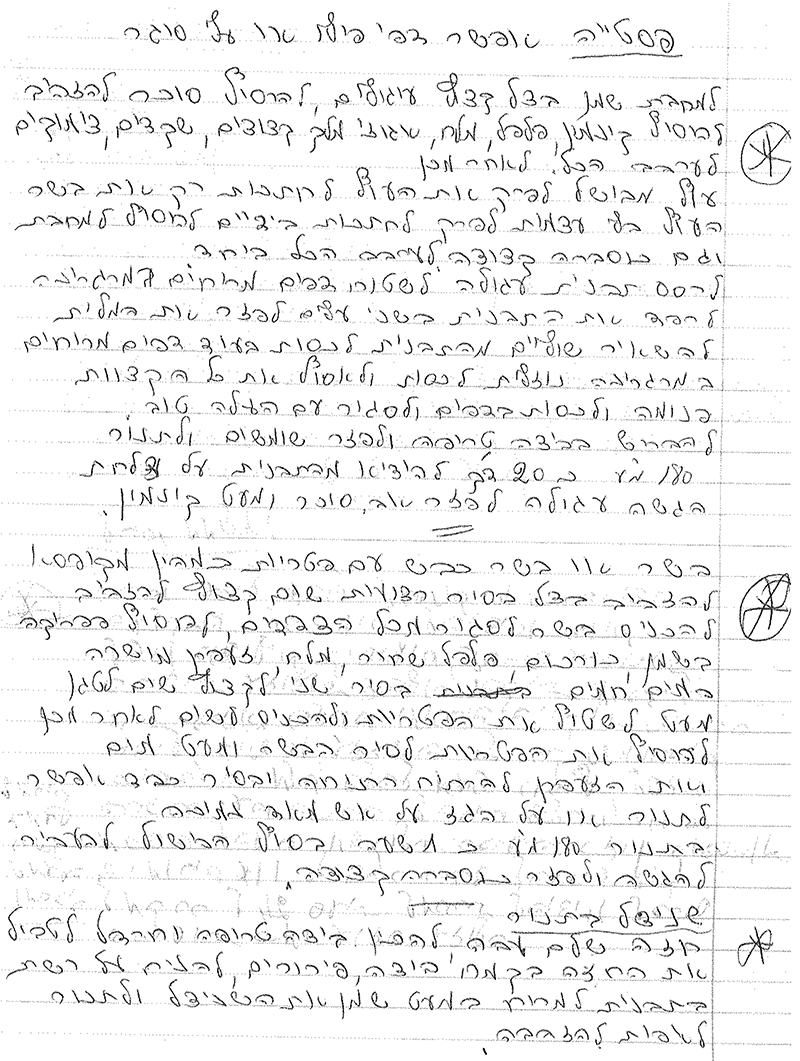 פסטייה אפשר דפי פילו או על סוגר
למחבת שמן בצל קצוץ עיגולים, להוסיף סוכר להזהיב
להוסיף קינמון, פלפל, מלח, אגוזי מלך קצוצים, שקדים, צימוקים
לערבב הכל. לאחר מכן
עוף מבושל לפרק את העוף לחתכות רק את בשר
העוף בלי עצמות לפרק לחתכות בידיים להוסיף למחבת
וגם כוסברה קצוצה לערבב הכל ביחד
לרסס תבנית עגולה לשטוח דפים מרוחים במרגרינה
לרפד את התבנית בשני עלים לפזר את המלית
להשאיר שוליים מהתבנית לכסות בעוד דפים מרוחים
במרגרינה נוזלית לכסות ולאסוף את כל הקצוות
פנימה ולכסות בדפים ולסגור עם העלה טוב.
להבריש בביצה טרופה ולפזר שומשים ולתנור
180 מ"ע כ 20 דק' להוציא מהתבנית על צלחת
הגשה עגולה לפזר אב. סוכר ומעט קינמון.
בשר או בשר כבש עם פטריות כמהין מקופסא
להזהיב בצל בסיר רצועות שום קצוץ להזהיב
להכניס בשר לסגור מכל הצדדים, להוסיף פפריקה
בשמן, כורכום, פלפל שחור, מלח, זעפרן מושרה
במים חמים בסיר שני לקצוץ שום לטגן
מעט לשטוף את הפטריות ולהכניס לשום לאחר מכן
להוסיף את הפטריות לסיר הבשר ומעט מים
ואת הזעפרן להרתיח הרתיחה ובסיר כבד אפשר
לתנור או על הגז על אש מאוד נמוכה
בתנור 180 מ"ע כ שעה בסוף הבישול להעביר
להגשה ולפזר כוסברה קצוצה.
שניצל בתנור
חזה שלם עבה להכין ביצה טרופה וחרדל לטבול
את החזה בקמח, ביצה, פירורים, להניח על רשת
בתבנית למרוח במעט שמן את השניצל ולתנור
לאפות להזהבה.